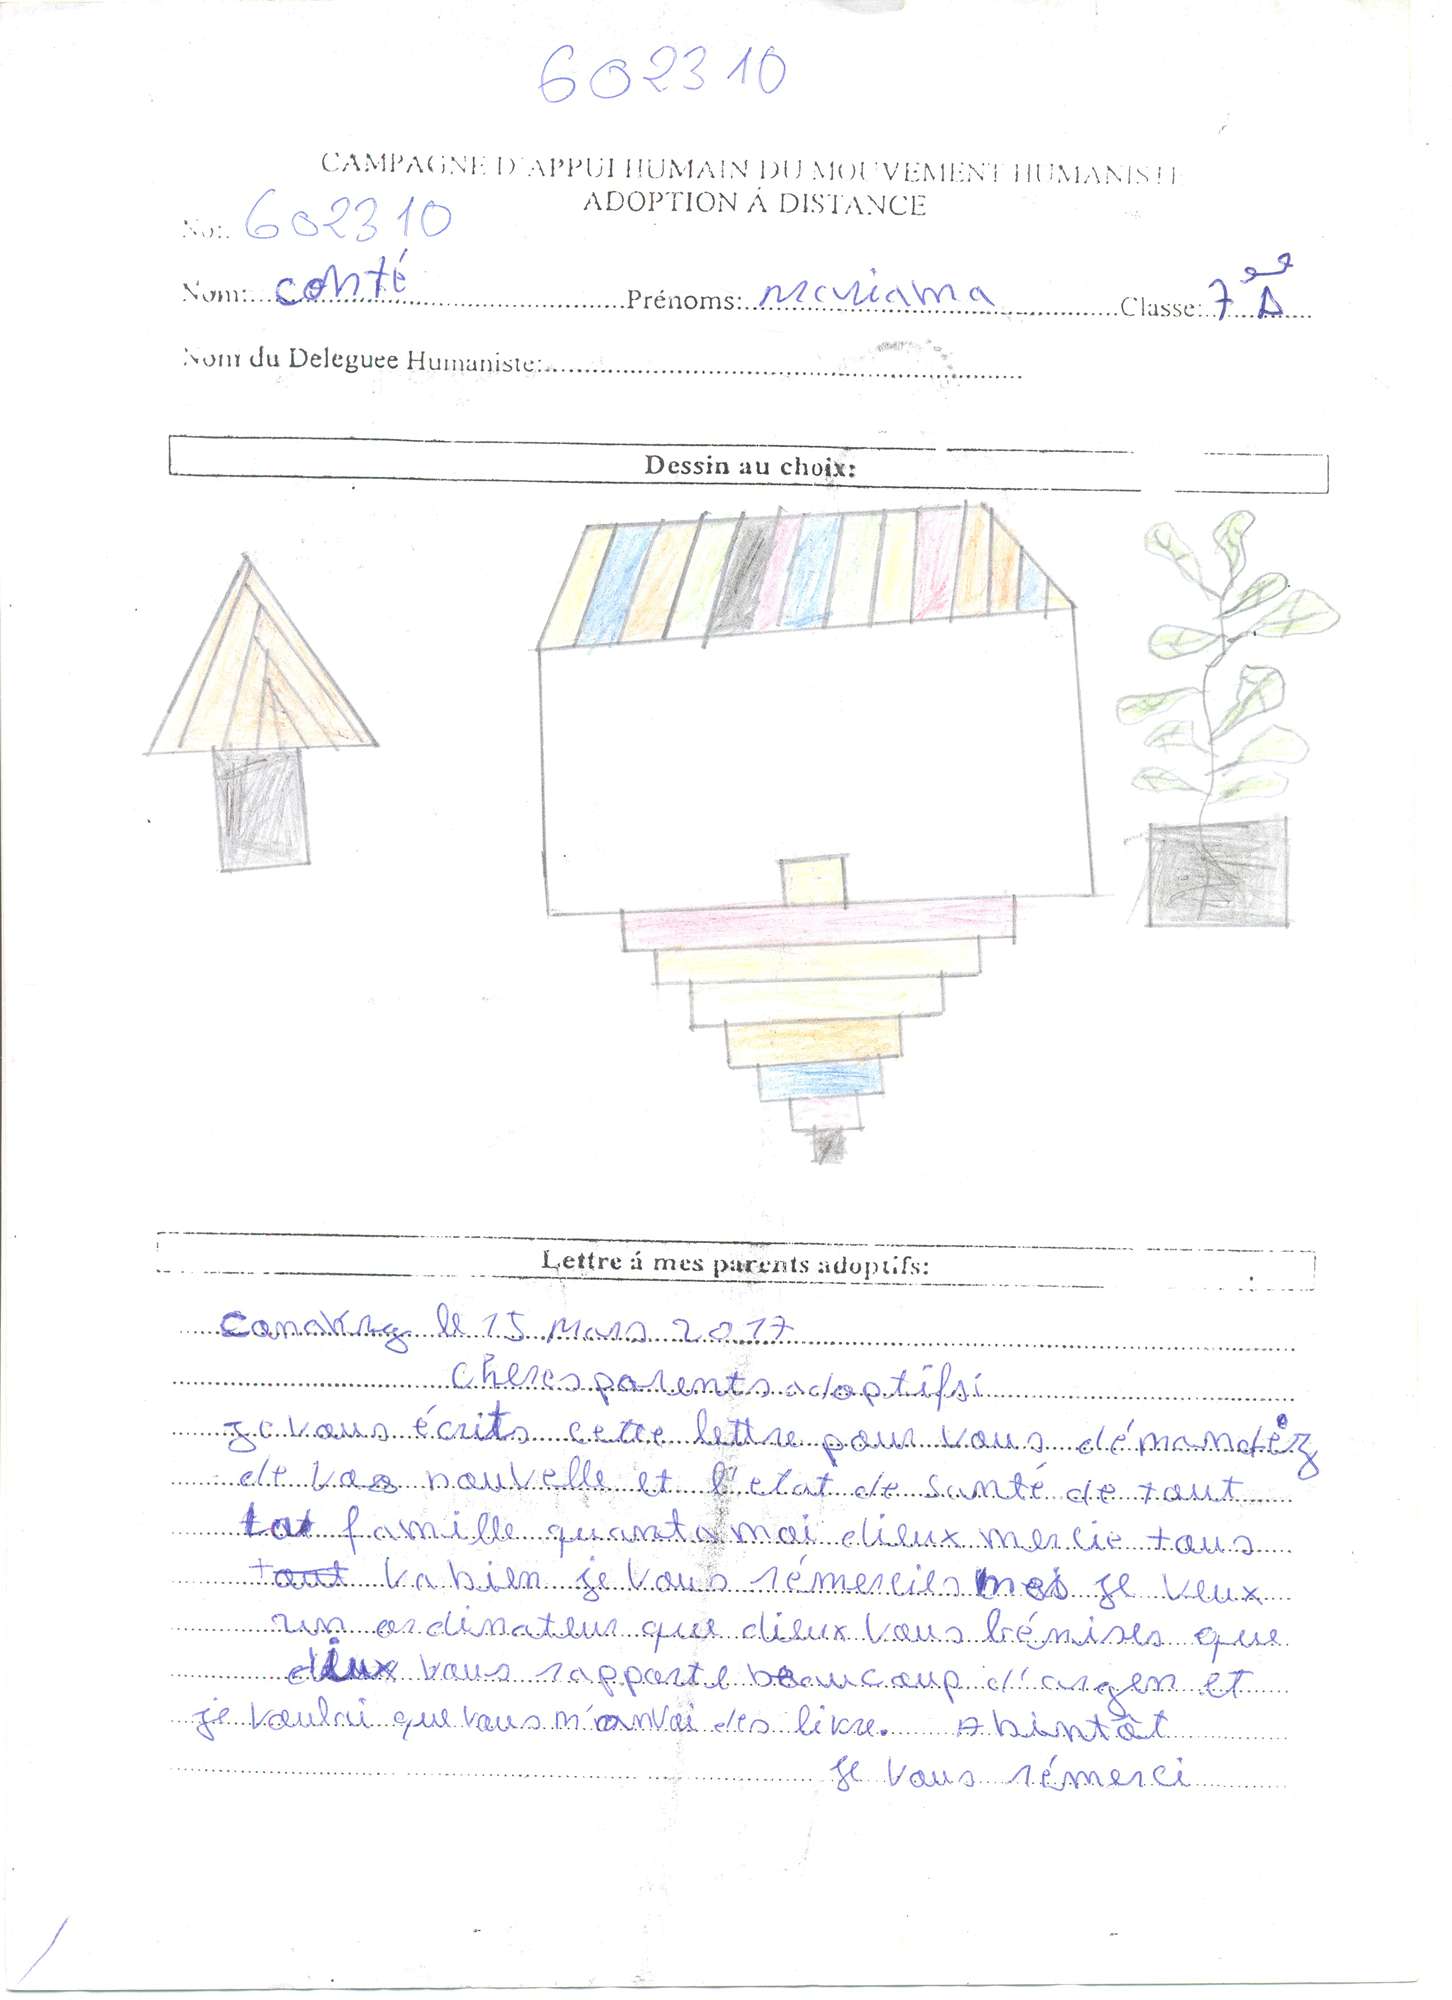 602310
CAMPAGNE D'APPUI HUMAIN DU MOUVEMENT HUMANISTE
ADOPTION Á DISTANCE
No: 602310
Nom: conté Prénoms: mariama Classe: 7ee A
Nom du Deleguee Humaniste:
Dessin au choix:
Lettre á mes parents adoptifs:
Conakry le 15 mars 2017
cheres parents adoptifs:
je vous écrits cette lettre pour vous démandéz
de vos nouvelle et l'etat de santé de tout
famille quant a moi dieux mercie tous
tout va bien je vous rémercies moi je veux
un ordinateur que dieux vous bénises que
dieux vous rapporte beaucoup d'argen et
je voulai que vous m'anvoi des livre. A bintôt
je vous rémerci